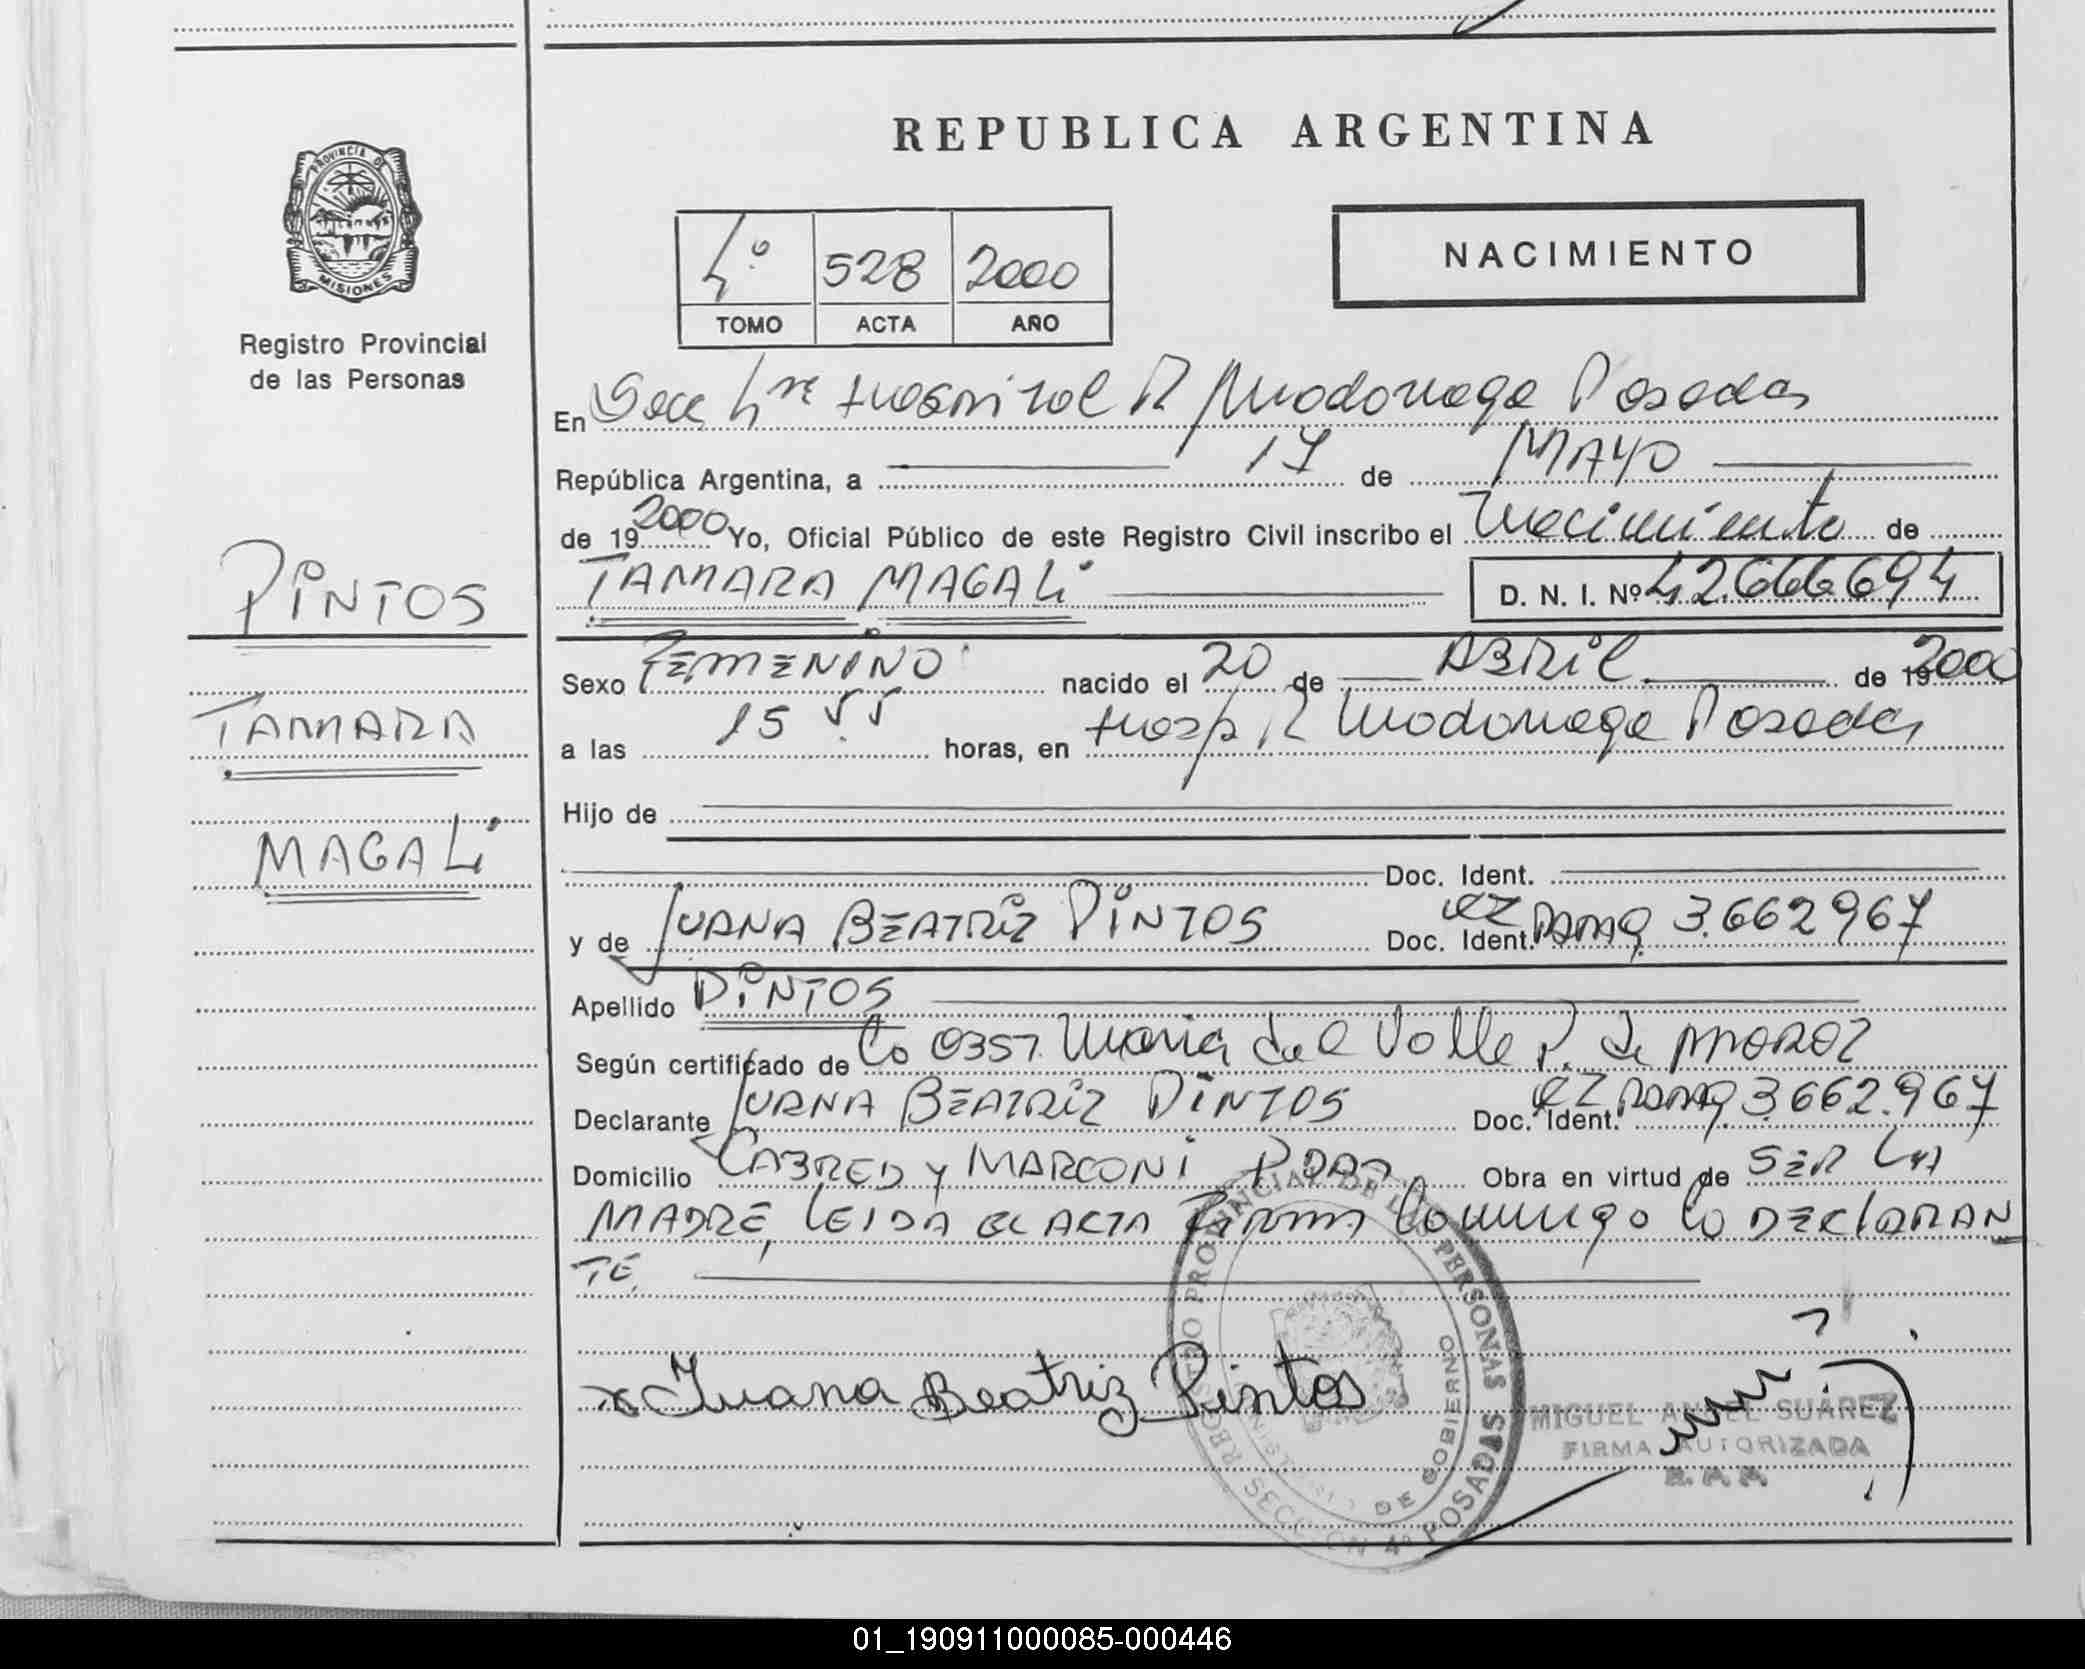 REPUBLICA ARGENTINA
PROVINCIA DE MISIONES
Registro Provincial
de las Personas
NACIMIENTO
4º 528 2000
TOMO ACTA AÑO
En Secc 4ta Hospital R Madariaga Posadas
República Argentina, a 17 de MAYO
de 19 2000 Yo, Oficial Público de este Registro Civil inscribo el Nacimiento de
TAMARA MAGALI D. N. I. Nº 42.666694
PINTOS
TAMARA
MAGALI
Sexo FEMENINO nacido el 20 de ABRIL de 19 2000
a las 15 55 horas, en Hosp R Madariaga Posadas
Hijo de
Doc. Ident.
y de JUANA BEATRIZ PINTOS Doc. Ident. 3.662967
Apellido PINTOS
Según certificado de Co 0357 Maria del Valle P. de
Declarante JUANA BEATRIZ PINTOS Doc. Ident. 3.662.967
Domicilio CABRED Y MARCONI Obra en virtud de SER LA
MADRE, LEIDA EL ACTA FIRMA Conmigo la DECLARAN
TE,
Juana Beatriz Pintos
REGISTRO PROVINCIAL DE LAS PERSONAS
DE GOBIERNO
SECCION 4ª POSADAS
MIGUEL ANGEL SUÁREZ
FIRMA AUTORIZADA
01_190911000085-000446